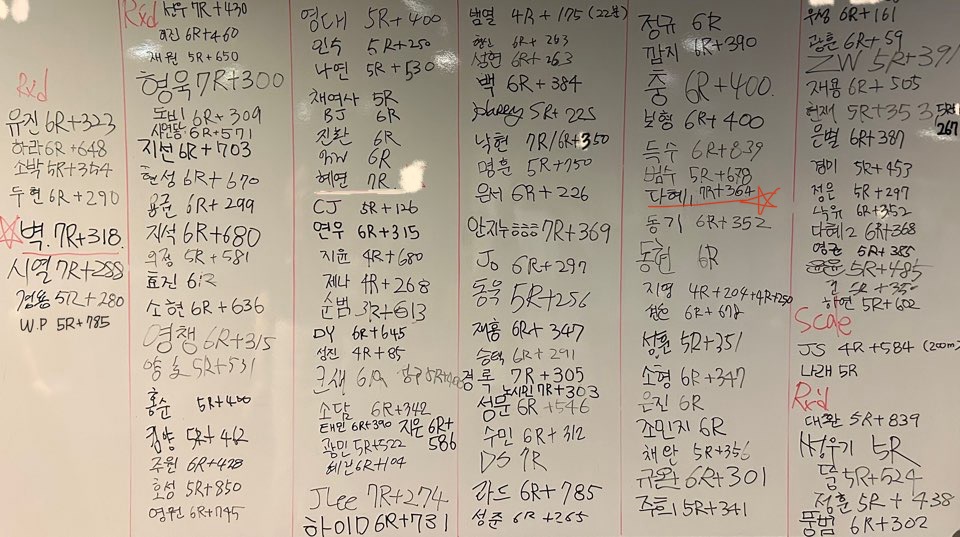 Rxd
유진 6R+323
하라 6R+648
소박 5R+354
두현 6R+290
벽. 7R+318.
시열 7R+288
경용 5R+280
W.P 5R+785
Rxd
선우 7R+430
희진 6R+460
재원 5R+650
형욱 7R+300
도비 6R+309
6R+571
지선 6R+703
현성 6R+670
용군 6R+299
지석 6R+680
의정 5R+581
효진 6R
소현 6R+636
영챙 6R+315
5R+531
홍순 5R+400
김양 5R+462
주원 6R+428
효성 5R+850
영원 6R+745
영대 5R+400
인수 5R+250
나연 5R+530
채연사 5R
BJ 6R
진환 6R
6R
혜연 7R
CJ 5R+126
연우 6R+315
지윤 4R+680
제나 4R+268
순범 3R+613
DY 6R+645
성진 4R+85
크새 6R
소담 6R+342
태민 6R+390 지은 6R+586
광민 5R+522
혜빈 6R+104
JLee 7R+274
하이D 6R+731
범열 4R+175 (22분)
6R+263
상현 6R+263
백 6R+384
5R+225
낙현 7R/6R+350
명훈 5R+750
은서 6R+226
안지수 7R+369
Jo 6R+297
동욱 5R+256
재홍 6R+347
승택 6R+291
경록 7R+305
농시민 7R+303
성문 6R+546
수민 6R+312
DS 7R
라드 6R+785
성준 6R+265
정규 6R
깜지 6R+390
충 6R+400.
보형 6R+400
득수 6R+839
범수 5R+678
다혜1 7R+364
동기 6R+352
동현 6R
지영 4R+204+4R+250
6R+678
성훈 5R+351
소형 6R+347
은진 6R
조민지 6R
채안 5R+356
규완 6R+301
주희 5R+341
우성 6R+161
광훈 6R+59
ZW 5R+391
재용 6R+505
현재 5R+353
은별 6R+387
경미 5R+453
정은 5R+297
낙뉴 6R+352
다혜2 6R+368
영균 5R+385
윤윤 5R+485
길 5R+350
하연 5R+602
Scale
JS 4R+584 (200m)
나래 5R
Rx'd
대환 5R+839
쌍우기 5R
둠 5R+524
정훈 5R+438
뚱범 6R+302